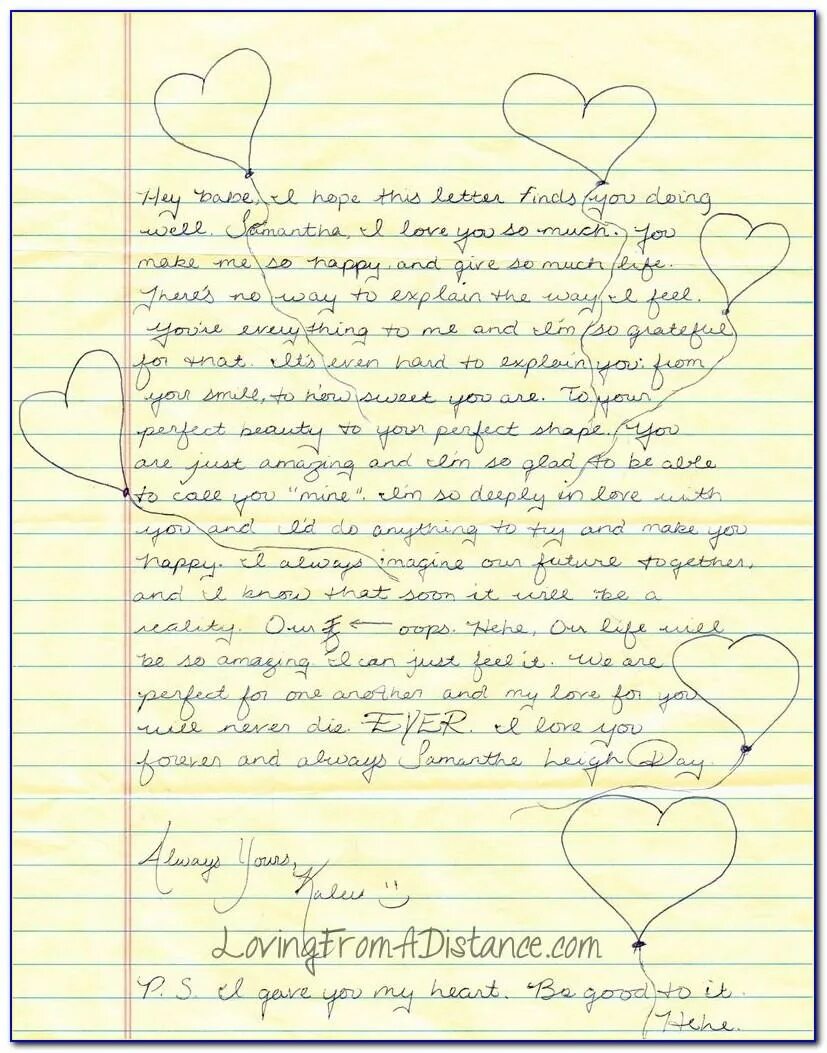 Hey babe, I hope this letter finds you doing
well. Samantha, I love you so much. You
make me so happy and give so much life.
There's no way to explain the way I feel.
You're everything to me and I'm so grateful
for that. It's even hard to explain you: from
your smile, to how sweet you are. To your
perfect beauty to your perfect shape. You
are just amazing and I'm so glad to be able
to call you "mine". I'm so deeply in love with
you and I'd do anything to try and make you
happy. I always imagine our future together,
and I know that soon it will be a
reality. Our ← oops. Hehe, Our life will
be so amazing I can just feel it. We are
perfect for one another and my love for you
will never die. EVER. I love you
forever and always Samantha Leigh Day.
Always Yours,
Kaleb
LovingFromADistance.com
P.S. I gave you my heart. Be good to it.
Hehe.